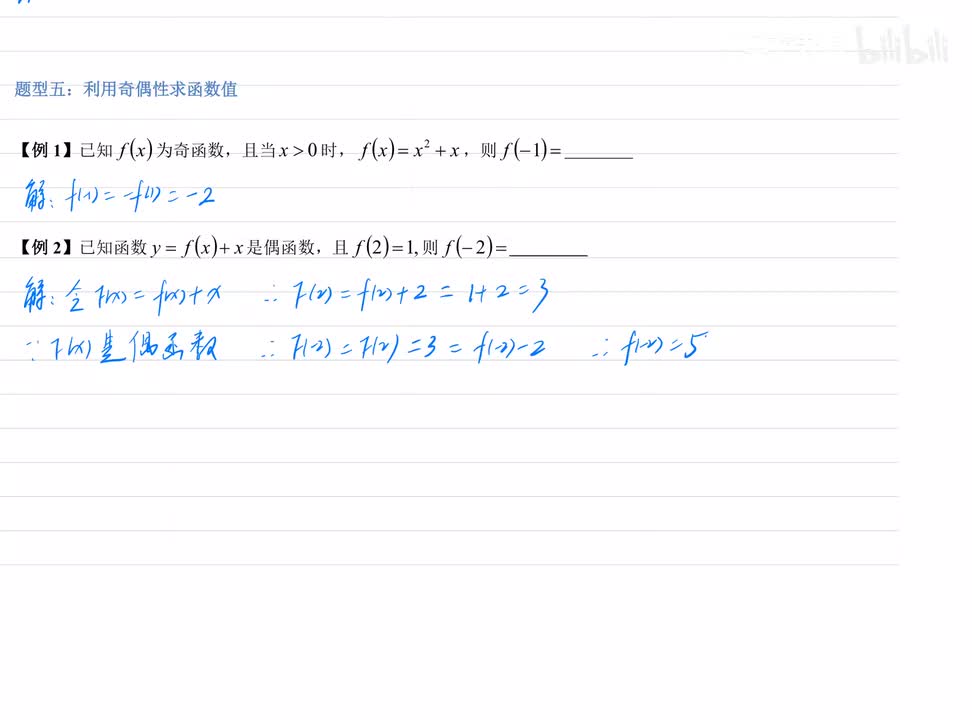 bilibili
题型五：利用奇偶性求函数值
【例1】已知 f(x) 为奇函数，且当 x > 0 时， f(x) = x² + x ，则 f(−1) = ________
解：f(-1) = -f(1) = -2
【例2】已知函数 y = f(x) + x 是偶函数，且 f(2) = 1, 则 f(−2) = ________
解：令 F(x) = f(x) + x ∴ F(2) = f(2) + 2 = 1 + 2 = 3
∵ F(x) 是偶函数 ∴ F(-2) = F(2) = 3 = f(-2) - 2 ∴ f(-2) = 5